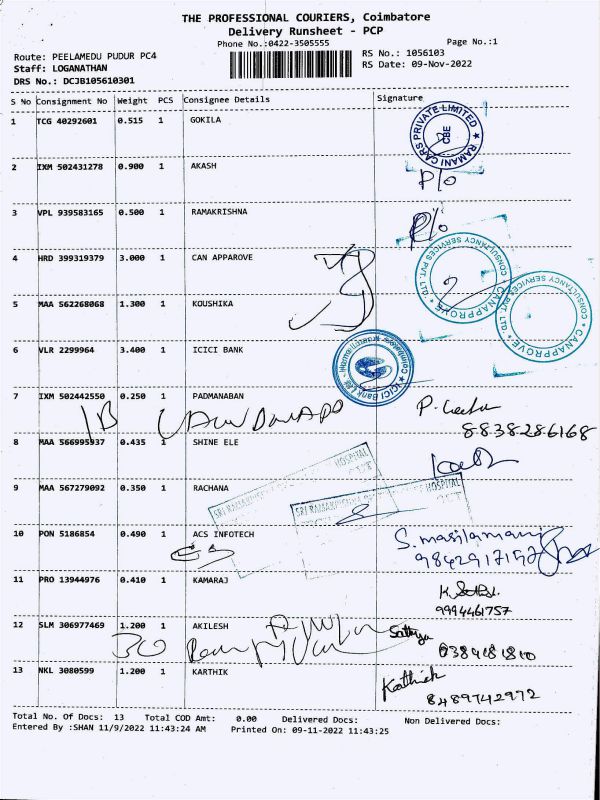 THE PROFESSIONAL COURIERS, Coimbatore
Delivery Runsheet - PCP
Phone No.:0422-3505555
Page No.:1
Route: PEELAMEDU PUDUR PC4
RS No.: 1056103
Staff: LOGANATHAN
RS Date: 09-Nov-2022
DRS No.: DCJB105610301
S No Consignment No Weight PCS Consignee Details Signature
1 TCG 40292601 0.515 1 GOKILA
RAMANI CARS PRIVATE LIMITED
CBE
2 IXM 502431278 0.900 1 AKASH
P/o
3 VPL 939583165 0.500 1 RAMAKRISHNA
P/o
4 HRD 399319379 3.000 1 CAN APPAROVE
CANAPPROVE CONSULTANCY SERVICES PVT. LTD.
CANAPPROVE CONSULTANCY SERVICES PVT. LTD.
5 MAA 562268068 1.300 1 KOUSHIKA
6 VLR 2299964 3.400 1 ICICI BANK
ICICI Bank Ltd
7 IXM 502442550 0.250 1 PADMANABAN
8838286168
8 MAA 566995937 0.435 1 SHINE ELE
9 MAA 567279092 0.350 1 RACHANA
SRI RAMAKRISHNA HOSPITAL
SRI RAMAKRISHNA HOSPITAL
10 PON 5186854 0.490 1 ACS INFOTECH
S. masilamani
9842917157
11 PRO 13944976 0.410 1 KAMARAJ
9994461757
12 SLM 306977469 1.200 1 AKILESH
Sathya
13 NKL 3080599 1.200 1 KARTHIK
Karthick
8489742972
Total No. Of Docs: 13 Total COD Amt: 0.00 Delivered Docs: Non Delivered Docs:
Entered By :SHAN 11/9/2022 11:43:24 AM Printed On: 09-11-2022 11:43:25